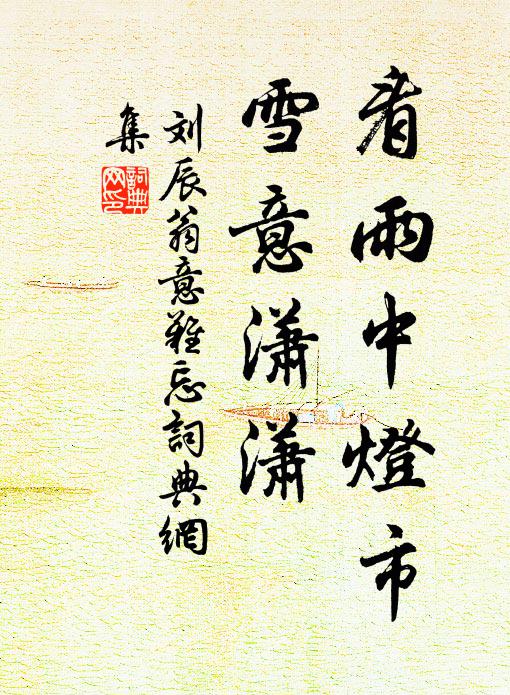 看雨中燈市
雪意瀟瀟
刘辰翁意難忘詞典網
集
詞典
网印